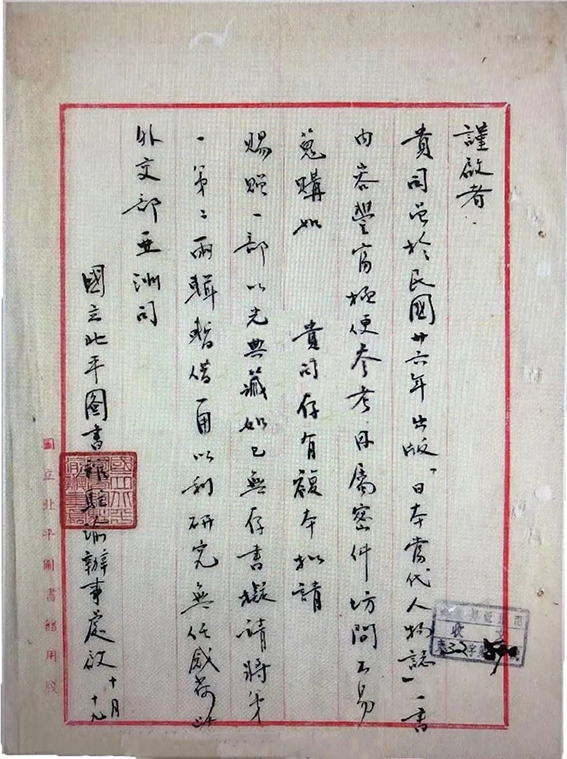 謹啟者：
貴司曾於民國廿六年出版「日本當代人物誌」一書
內容豐富極便參考因屬密件坊間不易
蒐購如　貴司存有複本擬請
賜贈一部以光典藏如已無存書擬請將第
一第二兩輯暫借一用以利研究無任感荷此致
外交部亞洲司
國立北平圖書館駐渝辦事處啟 十月十九
國立北平圖書館用牋
收文